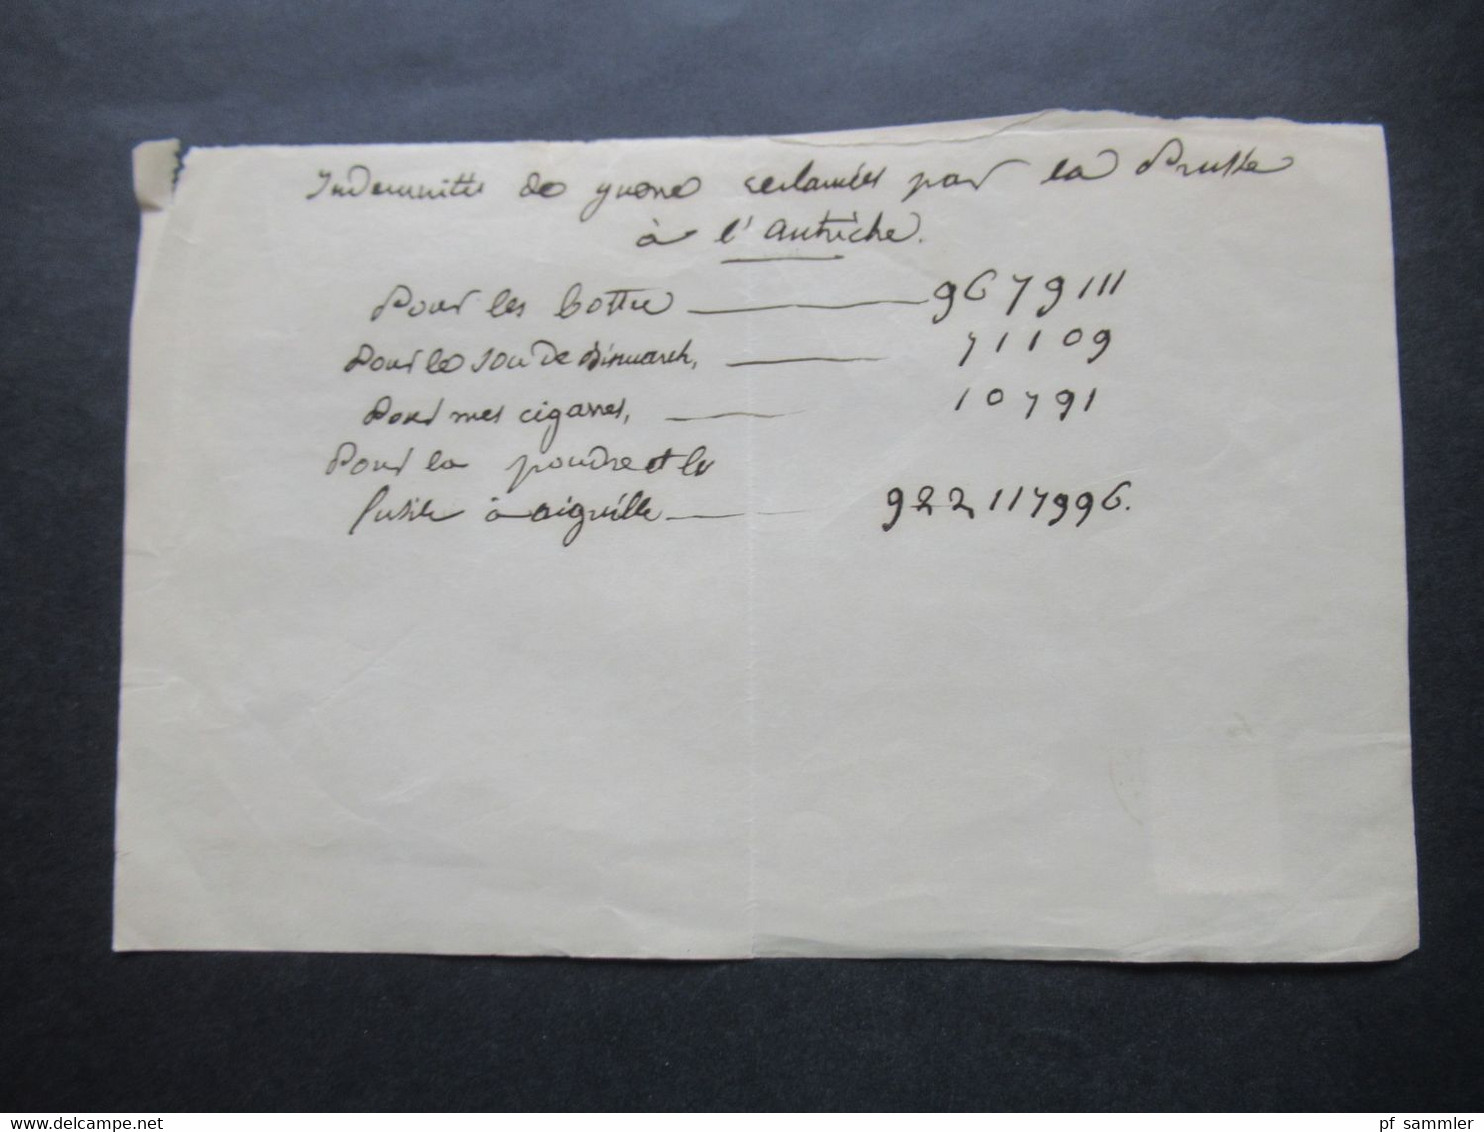 Indemnités de guerre reclamées par la Prusse
à l'Autriche.
Pour les bottes 9679111
Pour le sou de Bismarck, 71109
Pour mes cigarres, 10791
Pour la poudre et le
fusile à aiguille 922117996.
www.delcampe.net
pf_sammler